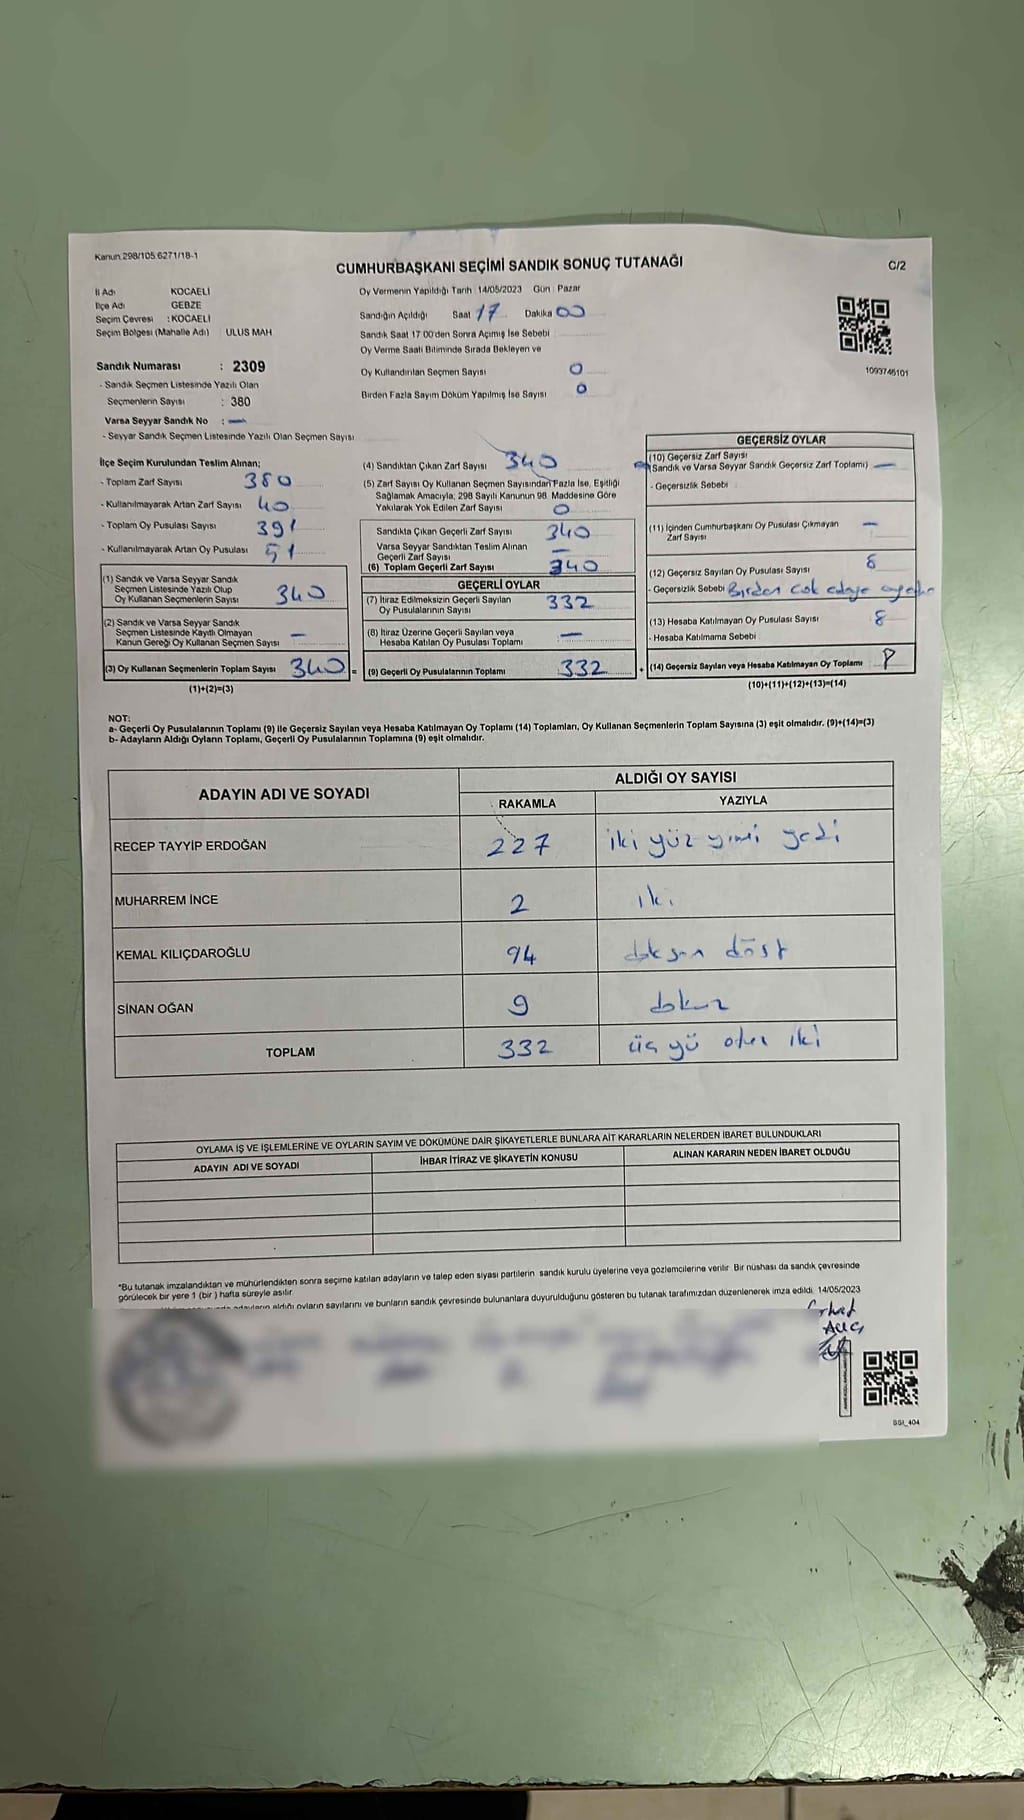 Kanun 298/105 6271/18-1
CUMHURBAŞKANI SEÇİMİ SANDIK SONUÇ TUTANAĞI
C/2
İl Adı KOCAELİ
İlçe Adı GEBZE
Seçim Çevresi : KOCAELİ
Seçim Bölgesi (Mahalle Adı) ULUS MAH
Sandık Numarası : 2309
- Sandık Seçmen Listesinde Yazılı Olan
Seçmenlerin Sayısı : 380
Varsa Seyyar Sandık No : —
- Seyyar Sandık Seçmen Listesinde Yazılı Olan Seçmen Sayısı
Oy Vermenin Yapıldığı Tarih 14/05/2023 Gün : Pazar
Sandığın Açıldığı Saat 17 Dakika 00
Sandık Saat 17 00'den Sonra Açımış İse Sebebi
Oy Verme Saati Bitiminde Sırada Bekleyen ve
Oy Kullandırılan Seçmen Sayısı 0
Birden Fazla Sayım Döküm Yapılmış İse Sayısı 0
1093746101
İlçe Seçim Kurulundan Teslim Alınan;
- Toplam Zarf Sayısı 380
- Kullanılmayarak Artan Zarf Sayısı 40
- Toplam Oy Pusulası Sayısı 391
- Kullanılmayarak Artan Oy Pusulası 51
(1) Sandık ve Varsa Seyyar Sandık
Seçmen Listesinde Yazılı Olup
Oy Kullanan Seçmenlerin Sayısı 340
(2) Sandık ve Varsa Seyyar Sandık
Seçmen Listesinde Kayıtlı Olmayan
Kanun Gereği Oy Kullanan Seçmen Sayısı —
(3) Oy Kullanan Seçmenlerin Toplam Sayısı 340 =
(1)+(2)=(3)
(4) Sandıktan Çıkan Zarf Sayısı 340
(5) Zarf Sayısı Oy Kullanan Seçmen Sayısından Fazla İse, Eşitliği
Sağlamak Amacıyla, 298 Sayılı Kanunun 98. Maddesine Göre
Yakılarak Yok Edilen Zarf Sayısı 0
Sandıkta Çıkan Geçerli Zarf Sayısı 340
Varsa Seyyar Sandıktan Teslim Alınan
Geçerli Zarf Sayısı —
(6) Toplam Geçerli Zarf Sayısı 340
GEÇERLİ OYLAR
(7) İtiraz Edilmeksizin Geçerli Sayılan
Oy Pusulalarının Sayısı 332
(8) İtiraz Üzerine Geçerli Sayılan veya
Hesaba Katılan Oy Pusulası Toplamı —
(9) Geçerli Oy Pusulalarının Toplamı 332 +
GEÇERSİZ OYLAR
(10) Geçersiz Zarf Sayısı
(Sandık ve Varsa Seyyar Sandık Geçersiz Zarf Toplamı) —
- Geçersizlik Sebebi
(11) İçinden Cumhurbaşkanı Oy Pusulası Çıkmayan
Zarf Sayısı —
(12) Geçersiz Sayılan Oy Pusulası Sayısı 8
- Geçersizlik Sebebi Birden çok adaya
(13) Hesaba Katılmayan Oy Pusulası Sayısı 8
- Hesaba Katılmama Sebebi
(14) Geçersiz Sayılan veya Hesaba Katılmayan Oy Toplamı 8
(10)+(11)+(12)+(13)=(14)
NOT:
a- Geçerli Oy Pusulalarının Toplamı (9) ile Geçersiz Sayılan veya Hesaba Katılmayan Oy Toplamı (14) Toplamları, Oy Kullanan Seçmenlerin Toplam Sayısına (3) eşit olmalıdır. (9)+(14)=(3)
b- Adayların Aldığı Oyların Toplamı, Geçerli Oy Pusulalarının Toplamına (9) eşit olmalıdır.
ADAYIN ADI VE SOYADI
ALDIĞI OY SAYISI
RAKAMLA YAZIYLA
RECEP TAYYİP ERDOĞAN 227 iki yüz yirmi yedi
MUHARREM İNCE 2 iki
KEMAL KILIÇDAROĞLU 94 doksan dört
SİNAN OĞAN 9 dokuz
TOPLAM 332 üç yü otuz iki
OYLAMA İŞ VE İŞLEMLERİNE VE OYLARIN SAYIM VE DÖKÜMÜNE DAİR ŞİKAYETLERLE BUNLARA AİT KARARLARIN NELERDEN İBARET BULUNDUKLARI
ADAYIN ADI VE SOYADI İHBAR İTİRAZ VE ŞİKAYETİN KONUSU ALINAN KARARIN NEDEN İBARET OLDUĞU
*Bu tutanak imzalandıktan ve mühürlendikten sonra seçime katılan adayların ve talep eden siyasi partilerin sandık kurulu üyelerine veya gözlemcilerine verilir. Bir nüshası da sandık çevresinde
görülecek bir yere 1 (bir) hafta süreyle asılır.
adayların aldığı oyların sayılarını ve bunların sandık çevresinde bulunanlara duyurulduğunu gösteren bu tutanak tarafımızdan düzenlenerek imza edildi. 14/05/2023
SSI_404